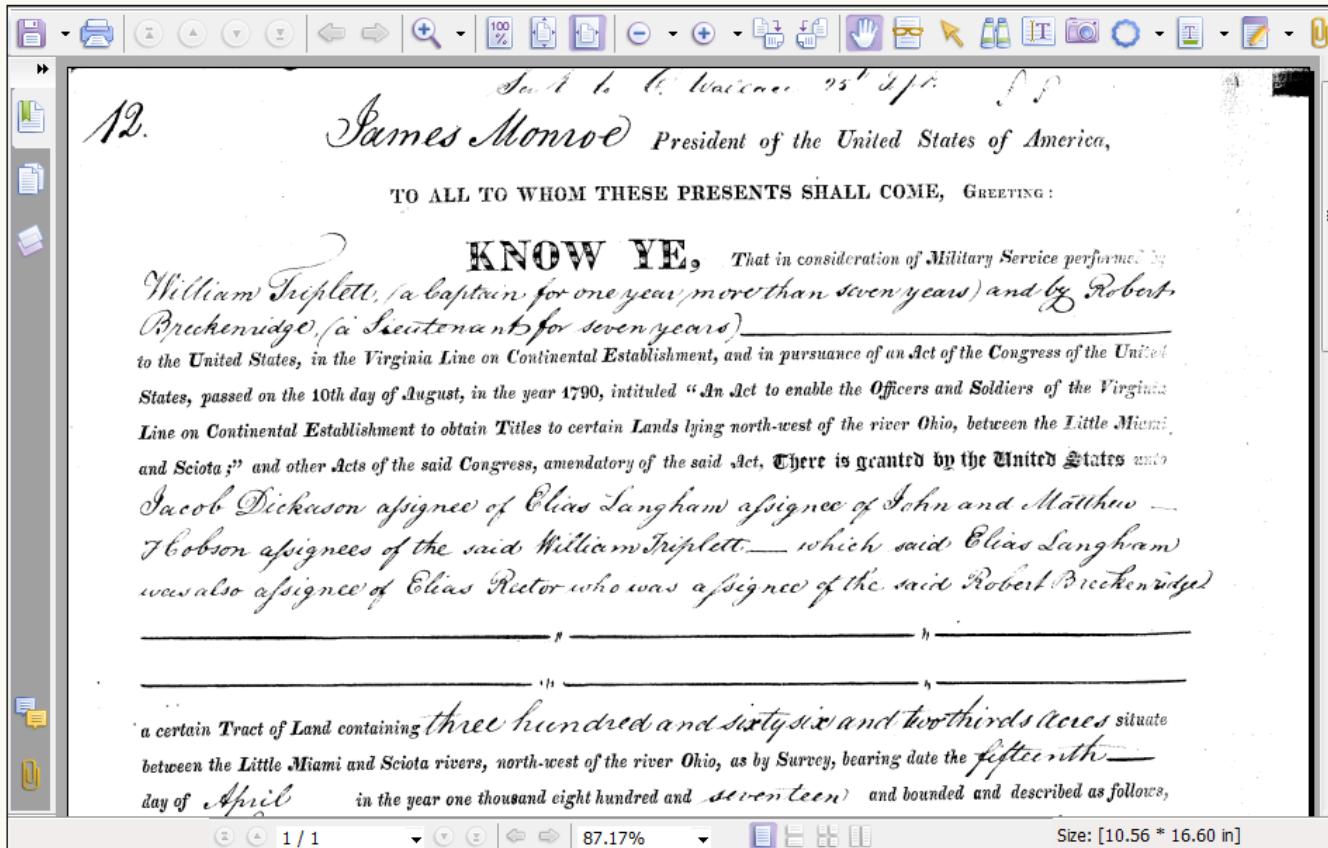 100 %
12.
Sent to C. Wallace 25th Apr.
James Monroe President of the United States of America,
TO ALL TO WHOM THESE PRESENTS SHALL COME, GREETING:
KNOW YE, That in consideration of Military Service performed by
William Triplett, (a Captain for one year more than seven years) and by Robert
Breckenridge, (a Lieutenant for seven years)
to the United States, in the Virginia Line on Continental Establishment, and in pursuance of an Act of the Congress of the United
States, passed on the 10th day of August, in the year 1790, intituled "An Act to enable the Officers and Soldiers of the Virginia
Line on Continental Establishment to obtain Titles to certain Lands lying north-west of the river Ohio, between the Little Miami
and Sciota;" and other Acts of the said Congress, amendatory of the said Act, There is granted by the United States unto
Jacob Dickason assignee of Elias Langham assignee of John and Matthew
Hobson assignees of the said William Triplett — which said Elias Langham
was also assignee of Elias Rector who was assignee of the said Robert Breckenridge
a certain Tract of Land containing three hundred and sixty six and two thirds acres situate
between the Little Miami and Sciota rivers, north-west of the river Ohio, as by Survey, bearing date the fifteenth —
day of April in the year one thousand eight hundred and seventeen and bounded and described as follows,
1 / 1 87.17% Size: [10.56 * 16.60 in]